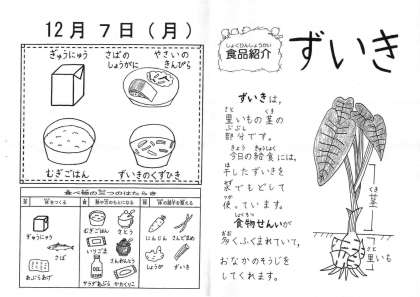 12月7日(月)
ぎゅうにゅう
さばの
しょうがに
やさいの
きんぴら
むぎごはん
ずいきのくずひき
食べ物の三つのはたらき
ぎゅうにゅう
さば
あぶらあげ
むぎごはん
さとう
いりごま
さんおんとう
サラダあぶら
かたくりこ
にんじん
さんどまめ
しょうが
ずいき
しょくひんしょうかい
食品紹介
ずいき
ずいきは、
さと くき
里いもの茎の
ぶぶん
部分です。
きょう きゅうしょく
今日の給食には、
干したずいきを
水でもどして
使っています。
しょくもつ
食物せんいが
おお
多くふくまれていて、
おなかのそうじを
してくれます。
くき
茎
さと
里いも